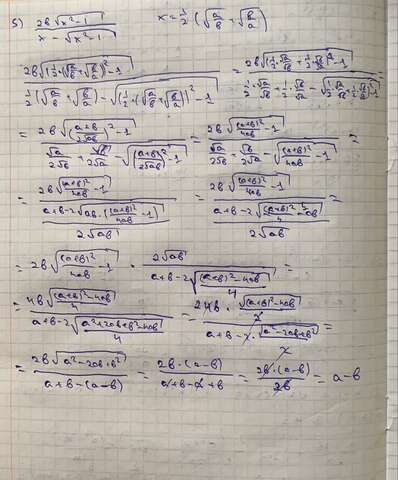 5) 2b√(x²-1) / (x - √(x²-1))    x = 1/2 (√(a/b) + √(b/a))
2b√((1/2·(√(a/b) + √(b/a)))² - 1) / (1/2(√(a/b) + √(b/a)) - √((1/2·(√(a/b) + √(b/a)))² - 1)) = 2b√((1/2·√a/√b + 1/2·√b/√a)² - 1) / (1/2·√a/√b + 1/2·√b/√a - √((1/2·√a/√b + 1/2·√b/√a)² - 1)) =
= 2b√(((a+b)/(2√ab))² - 1) / (√a/(2√b) + √b/(2√a) - √(((a+b)/(2√ab))² - 1)) = 2b√((a+b)²/4ab - 1) / (√a/(2√b) + √b/(2√a) - √((a+b)²/4ab - 1)) =
= 2b√((a+b)²/4ab - 1) / ((a+b-2√(ab·((a+b)²/4ab - 1))) / 2√ab) = 2b√((a+b)²/4ab - 1) / ((a+b-2√((a+b)²/4 - ab)) / 2√ab) =
= 2b√((a+b)²/4ab - 1) · 2√ab / (a+b-2√(((a+b)²-4ab)/4)) =
= 4b√(((a+b)²-4ab)/4) / (a+b-2√((a²+2ab+b²-4ab)/4)) = 24b·√((a+b)²-4ab)/2 / (a+b-2·√(a²-2ab+b²)/2) =
= 2b√(a²-2ab+b²) / (a+b-(a-b)) = 2b·(a-b) / (a+b-a+b) = 2b·(a-b) / 2b = a-b